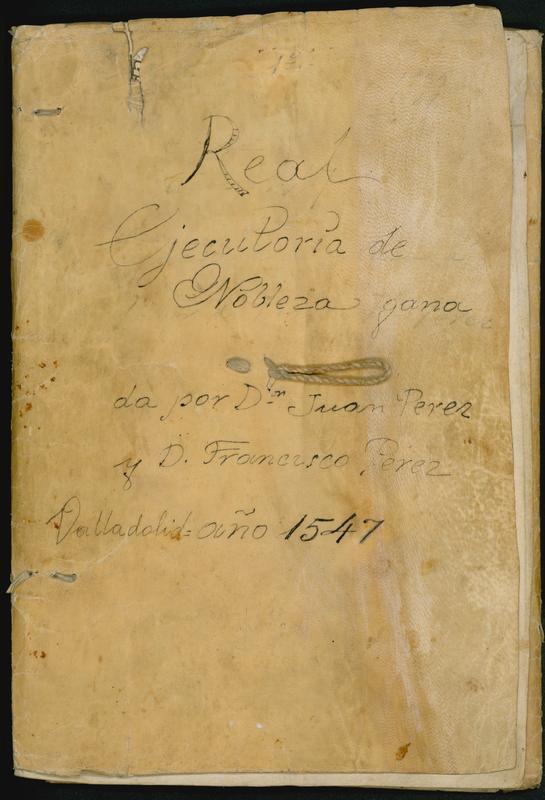 Real
Ejecutoria de
Nobleza gana
da por Dn. Juan Perez
y D. Francisco Perez
Valladolid= año 1547